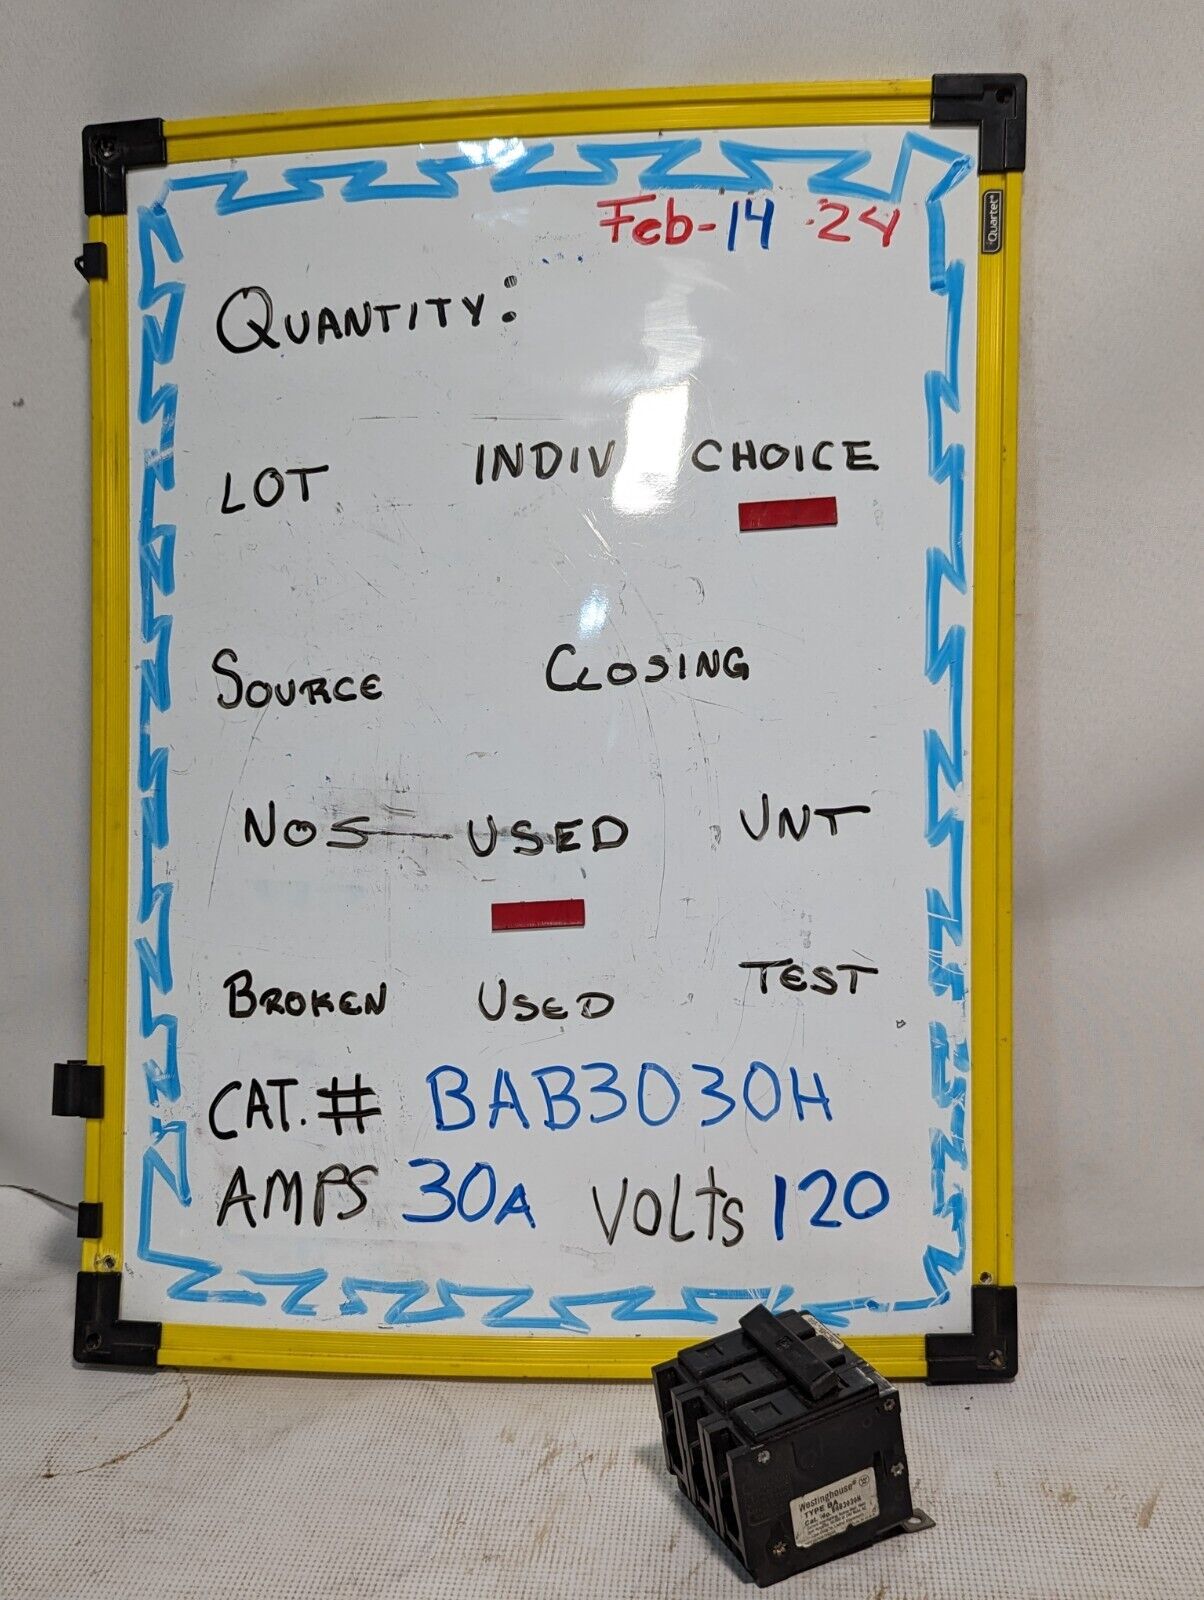 Feb-14 '24
Quartet
QUANTITY:
LOT INDIV CHOICE
SOURCE CLOSING
NOS USED UNT
BROKEN USED TEST
CAT.# BAB3030H
AMPS 30A VOLTS 120
Westinghouse®
TYPE BA
Cat. No. BAB3030H